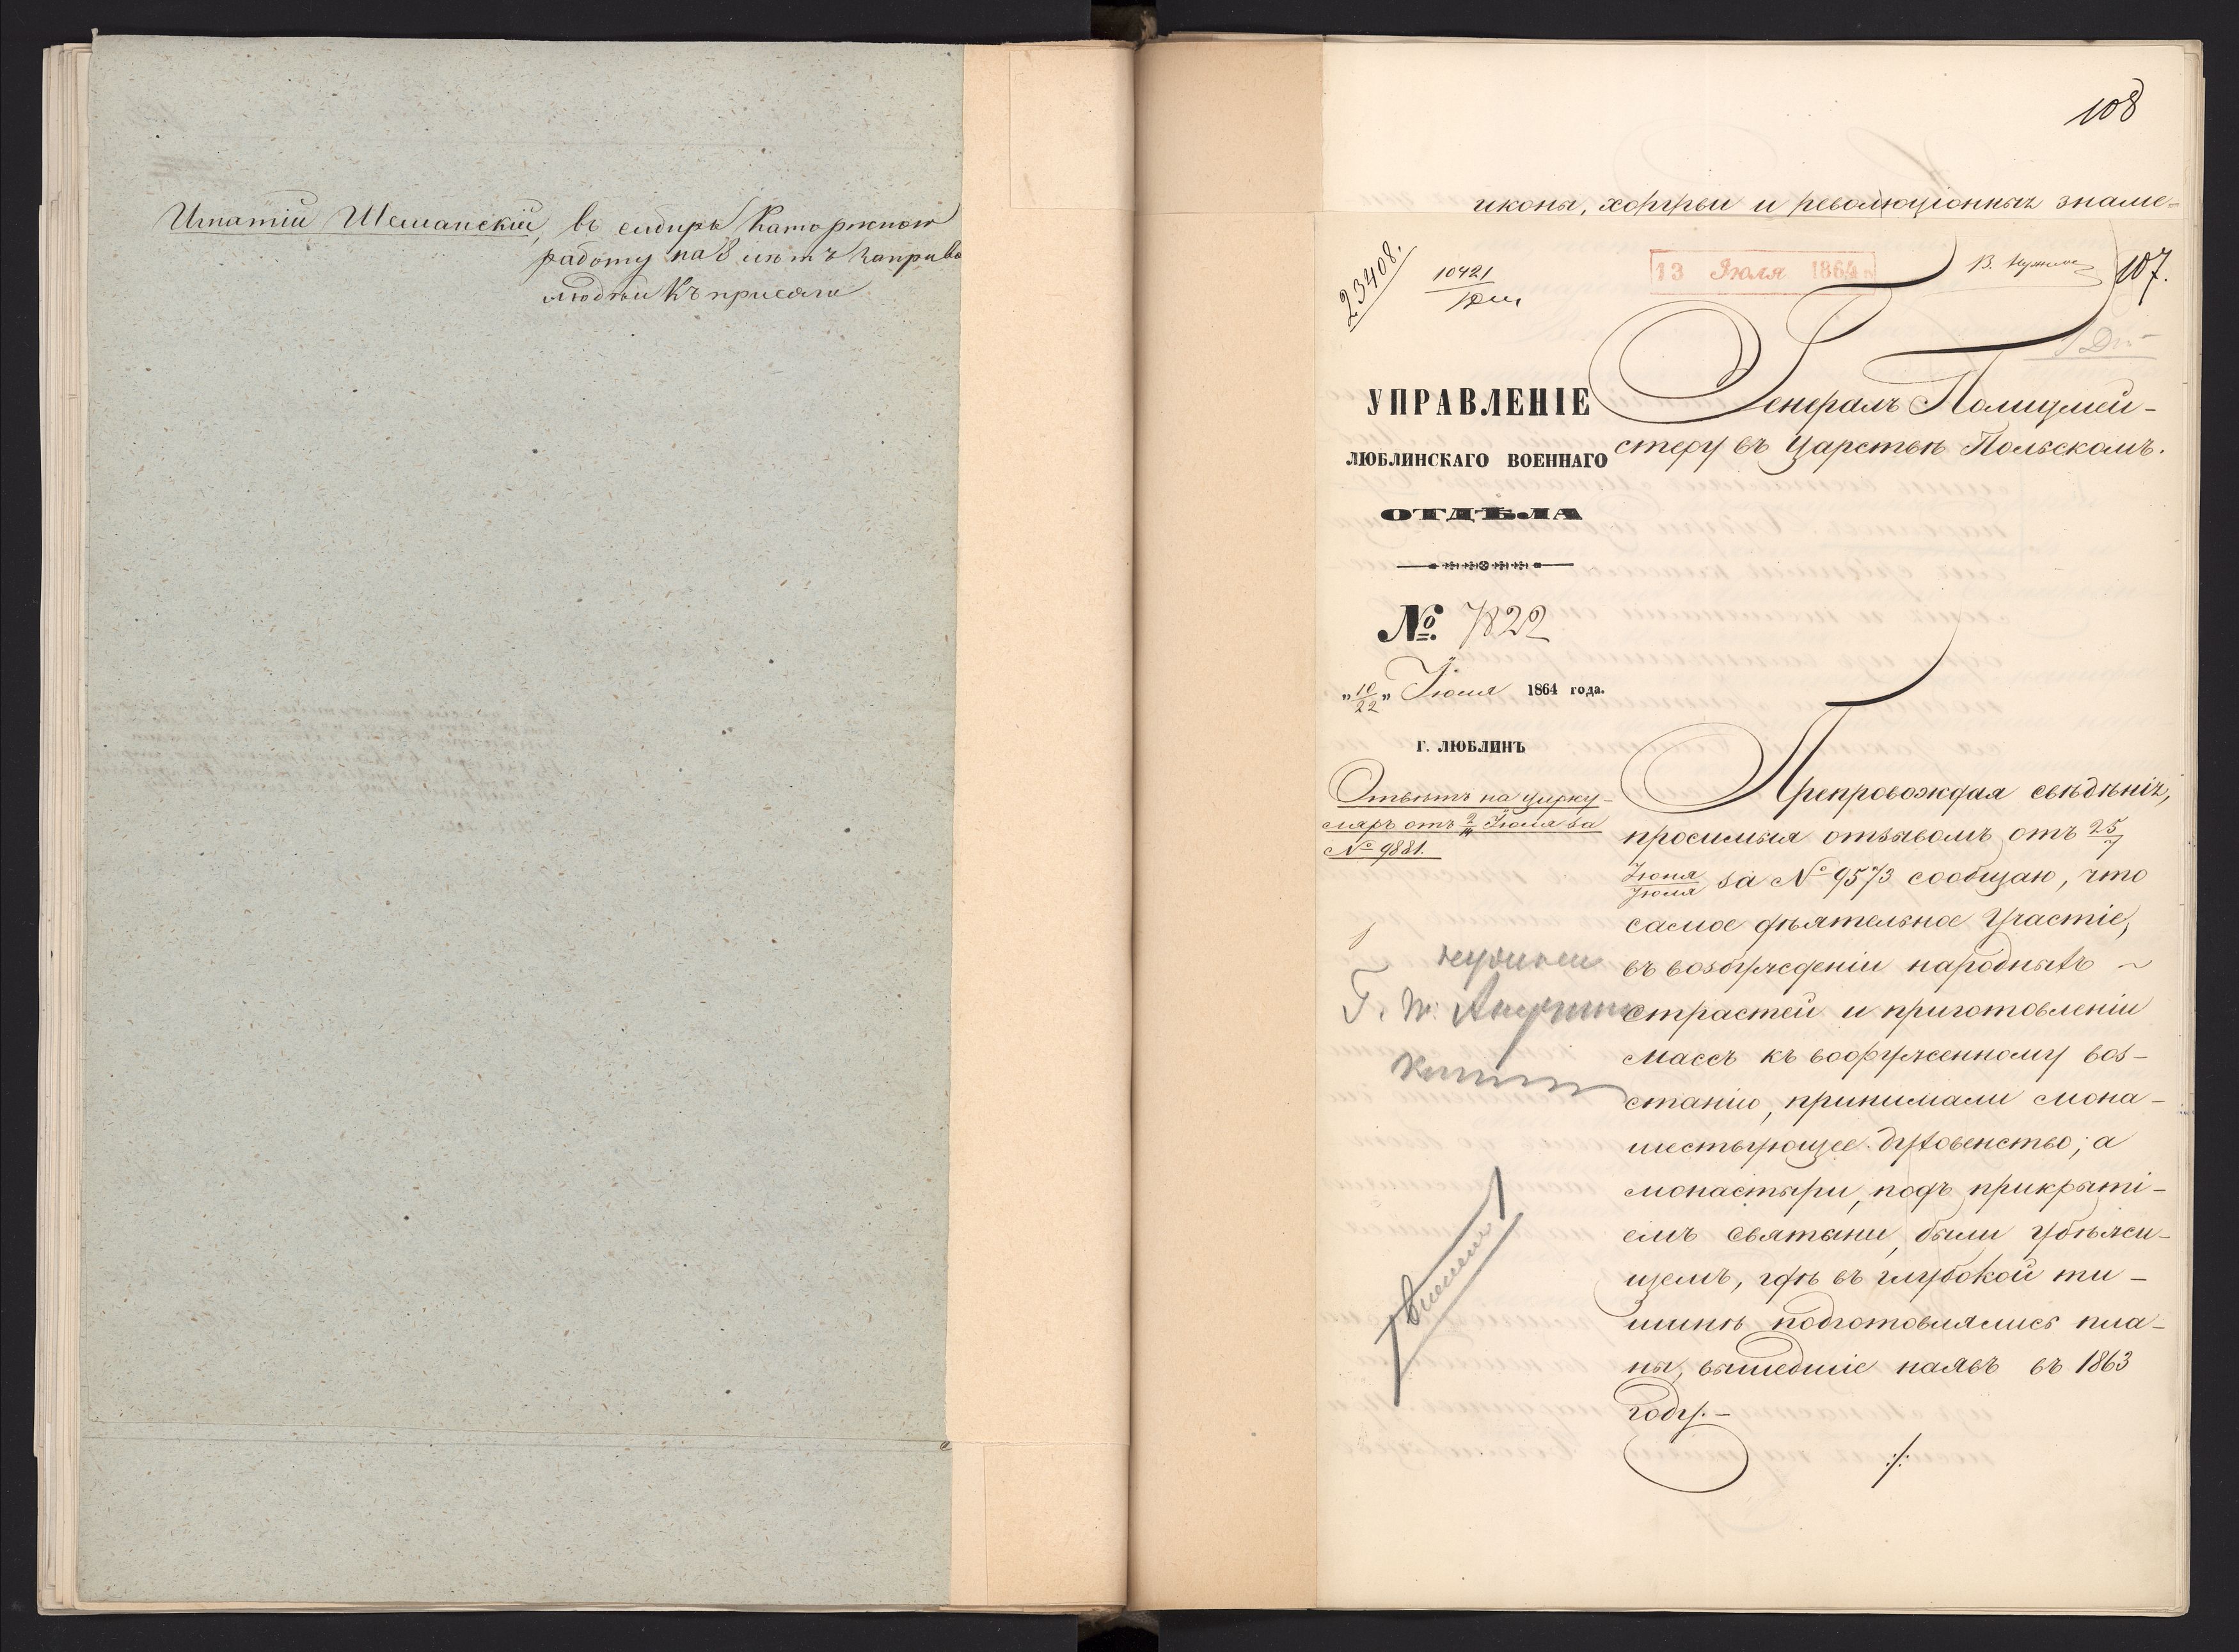 Игнатій Шеманскій, въ сибирь Каторжною
работу на 8 лѣтъ заприво
людѣй къ присягѣ
108
иконы, хоругви и революціонныя знаме=
23408.
10421
13 Іюля 1864
107.
Генералъ Полицмей-
стеру въ Царствѣ Польскомъ.
УПРАВЛЕНІЕ
ЛЮБЛИНСКАГО ВОЕННАГО
ОТДѢЛА
№ 7822
„10/22„ Іюля 1864 года.
Г. ЛЮБЛИНЪ
Отвѣтъ на цирку-
ляръ отъ 2/14 Іюля за
№ 9881.
Препровождая свѣдѣнія,
просимыя отзывомъ отъ 25/7
Іюня/Іюля за № 9573 сообщаю, что
самое дѣятельное участіе,
въ возбужденіи народныхъ
страстей и приготовленіи
массъ къ вооруженному воз-
станію, принимали мона-
шествующее духовенство, а
монастыри, подъ прикрыті-
емъ святыни, были убѣжи-
щемъ, гдѣ въ глубокой ти-
шинѣ подготовлялись пла-
ны, вышедшіе наявъ въ 1863
году.-
./.